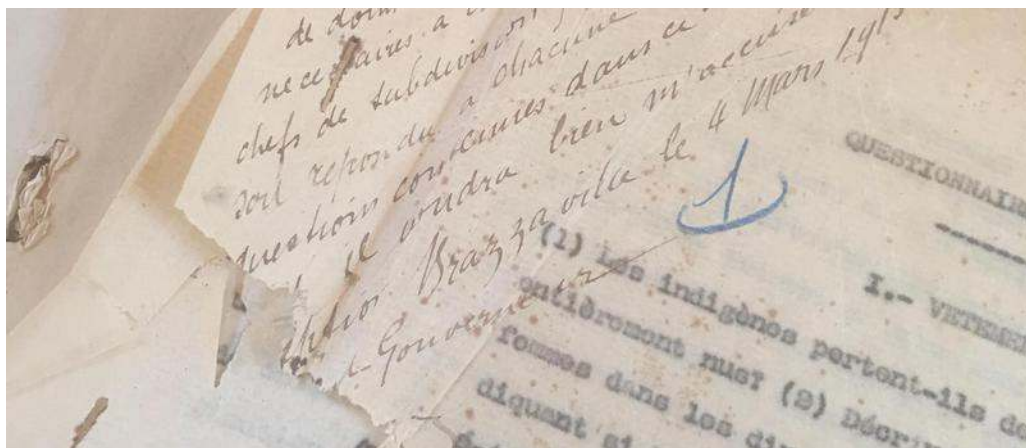 de
necessaires a
chefs de subdivision
soit repondu a chacune
questions contenues dans ce
il voudra bien m'accuser
Brazzaville le 4 Mars 191
Gouverneur
1
QUESTIONNAIRE
I.- VETEMEN
(1) Les indigènes portent-ils de
entièrement nus? (2) Décr
femmes dans les di
diquant si